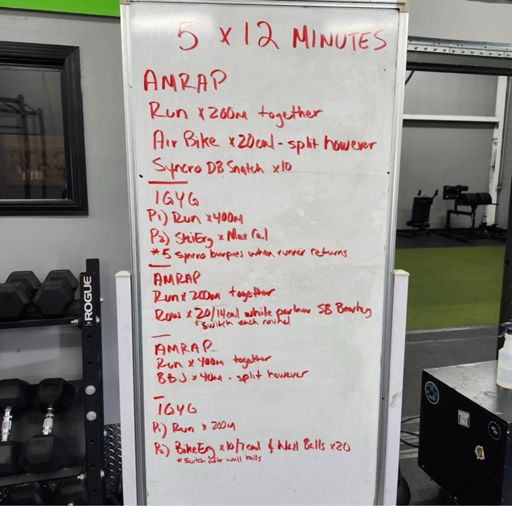 5 x 12 MINUTES
AMRAP
Run x 200m together
Air Bike x 20cal - split however
Syncro DB Snatch x10
IGYG
P1) Run x 400m
P2) SkiErg x Max Cal
*5 syncro burpies when runner returns
AMRAP
Run x 200m together
Row x 20/14cal while partner SB Bearhug
*switch each round
AMRAP
Run x 400m together
BBJ x 40m - split however
IGYG
P1) Run x 200m
P2) BikeErg x 10/7cal & Wall Balls x20
*switch after wall balls
ROGUE